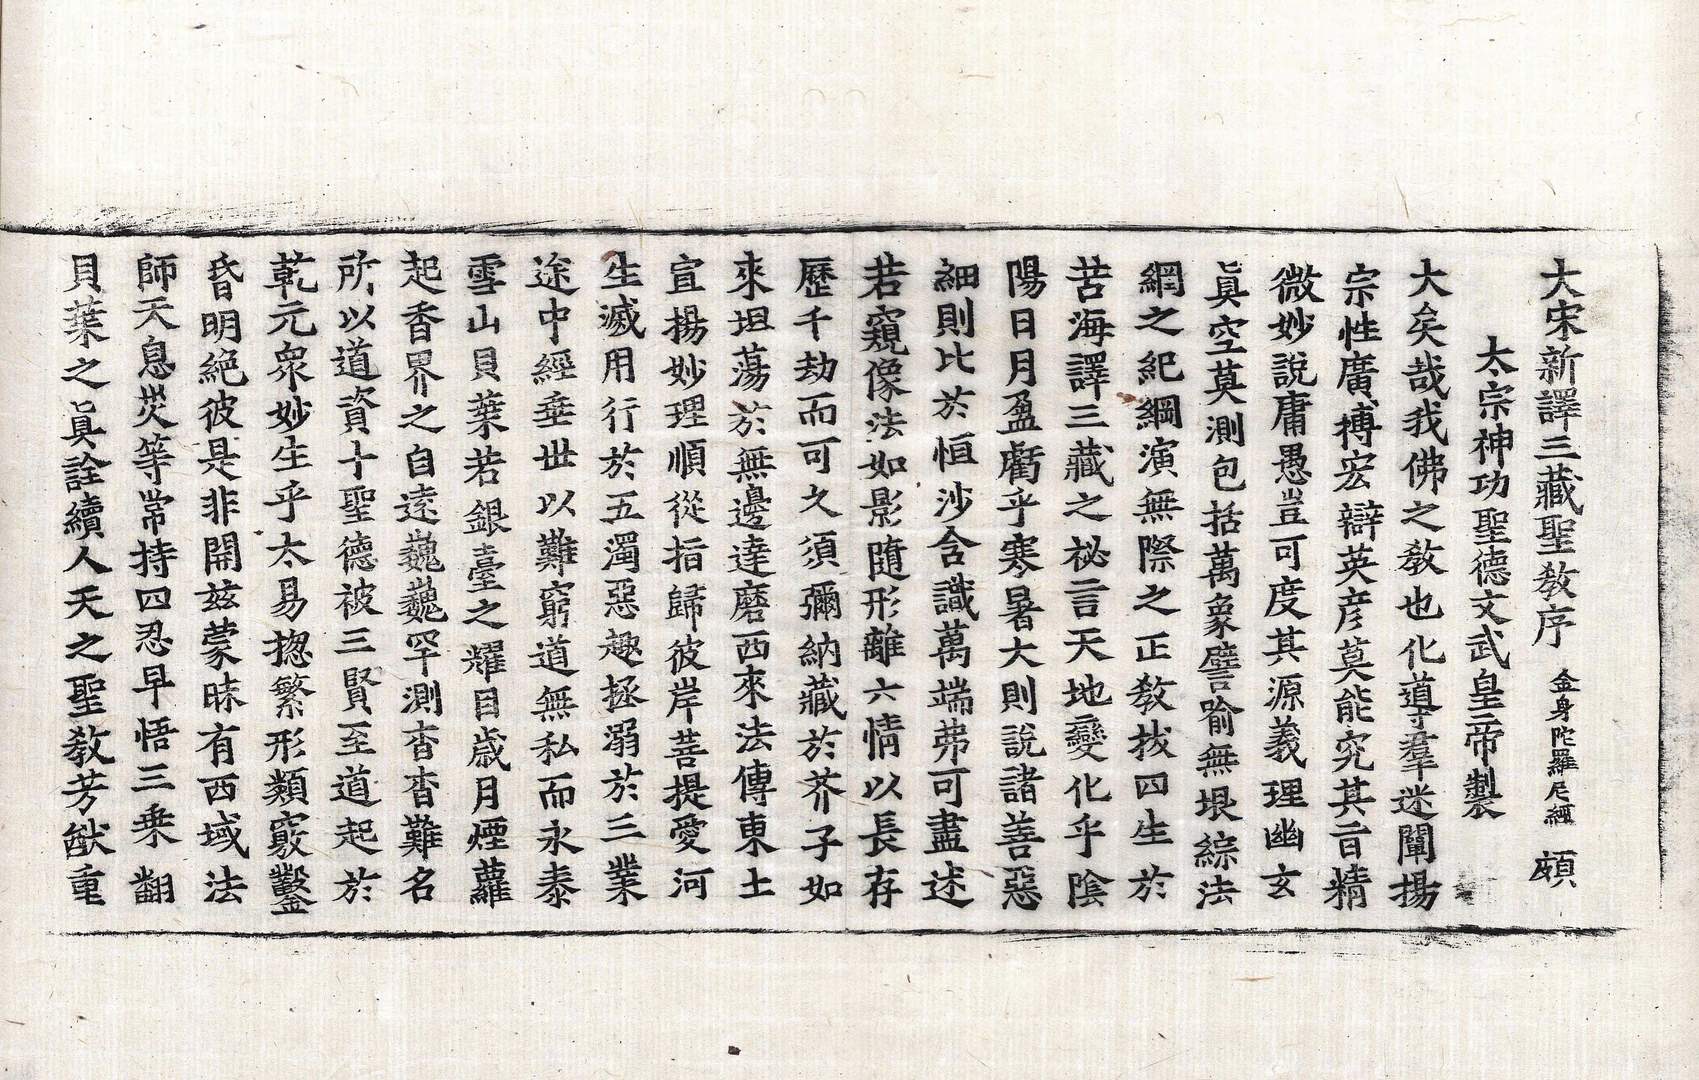 大宋新譯三藏聖教序 金身陀羅尼經 頗
太宗神功聖德文武皇帝製
大矣哉我佛之教也化導羣迷闡揚
宗性廣摶宏辯英彦莫能究其旨精
微妙說庸愚豈可度其源義理幽玄
眞空莫測包括萬象譬喻無垠綜法
網之紀綱演無際之正教拔四生於
苦海譯三藏之祕言天地變化乎陰
陽日月盈虧乎寒暑大則說諸善惡
細則比於恒沙含識萬端弗可盡述
若窺像法如影隨形離六情以長存
歷千劫而可久須彌納藏於芥子如
來坦蕩於無邊達磨西來法傳東土
宣揚妙理順從指歸彼岸菩提愛河
生滅用行於五濁惡趣拯溺於三業
途中經垂世以難窮道無私而永泰
雪山貝葉若銀臺之耀目歲月煙蘿
起香界之自遠巍巍罕測杳杳難名
所以道資十聖德被三賢至道起於
乾元衆妙生乎太易揔繁形類竅鑿
昏明絕彼是非開茲蒙昧有西域法
師天息災等常持四忍早悟三乘翻
貝葉之眞詮續人天之聖教芳猷重